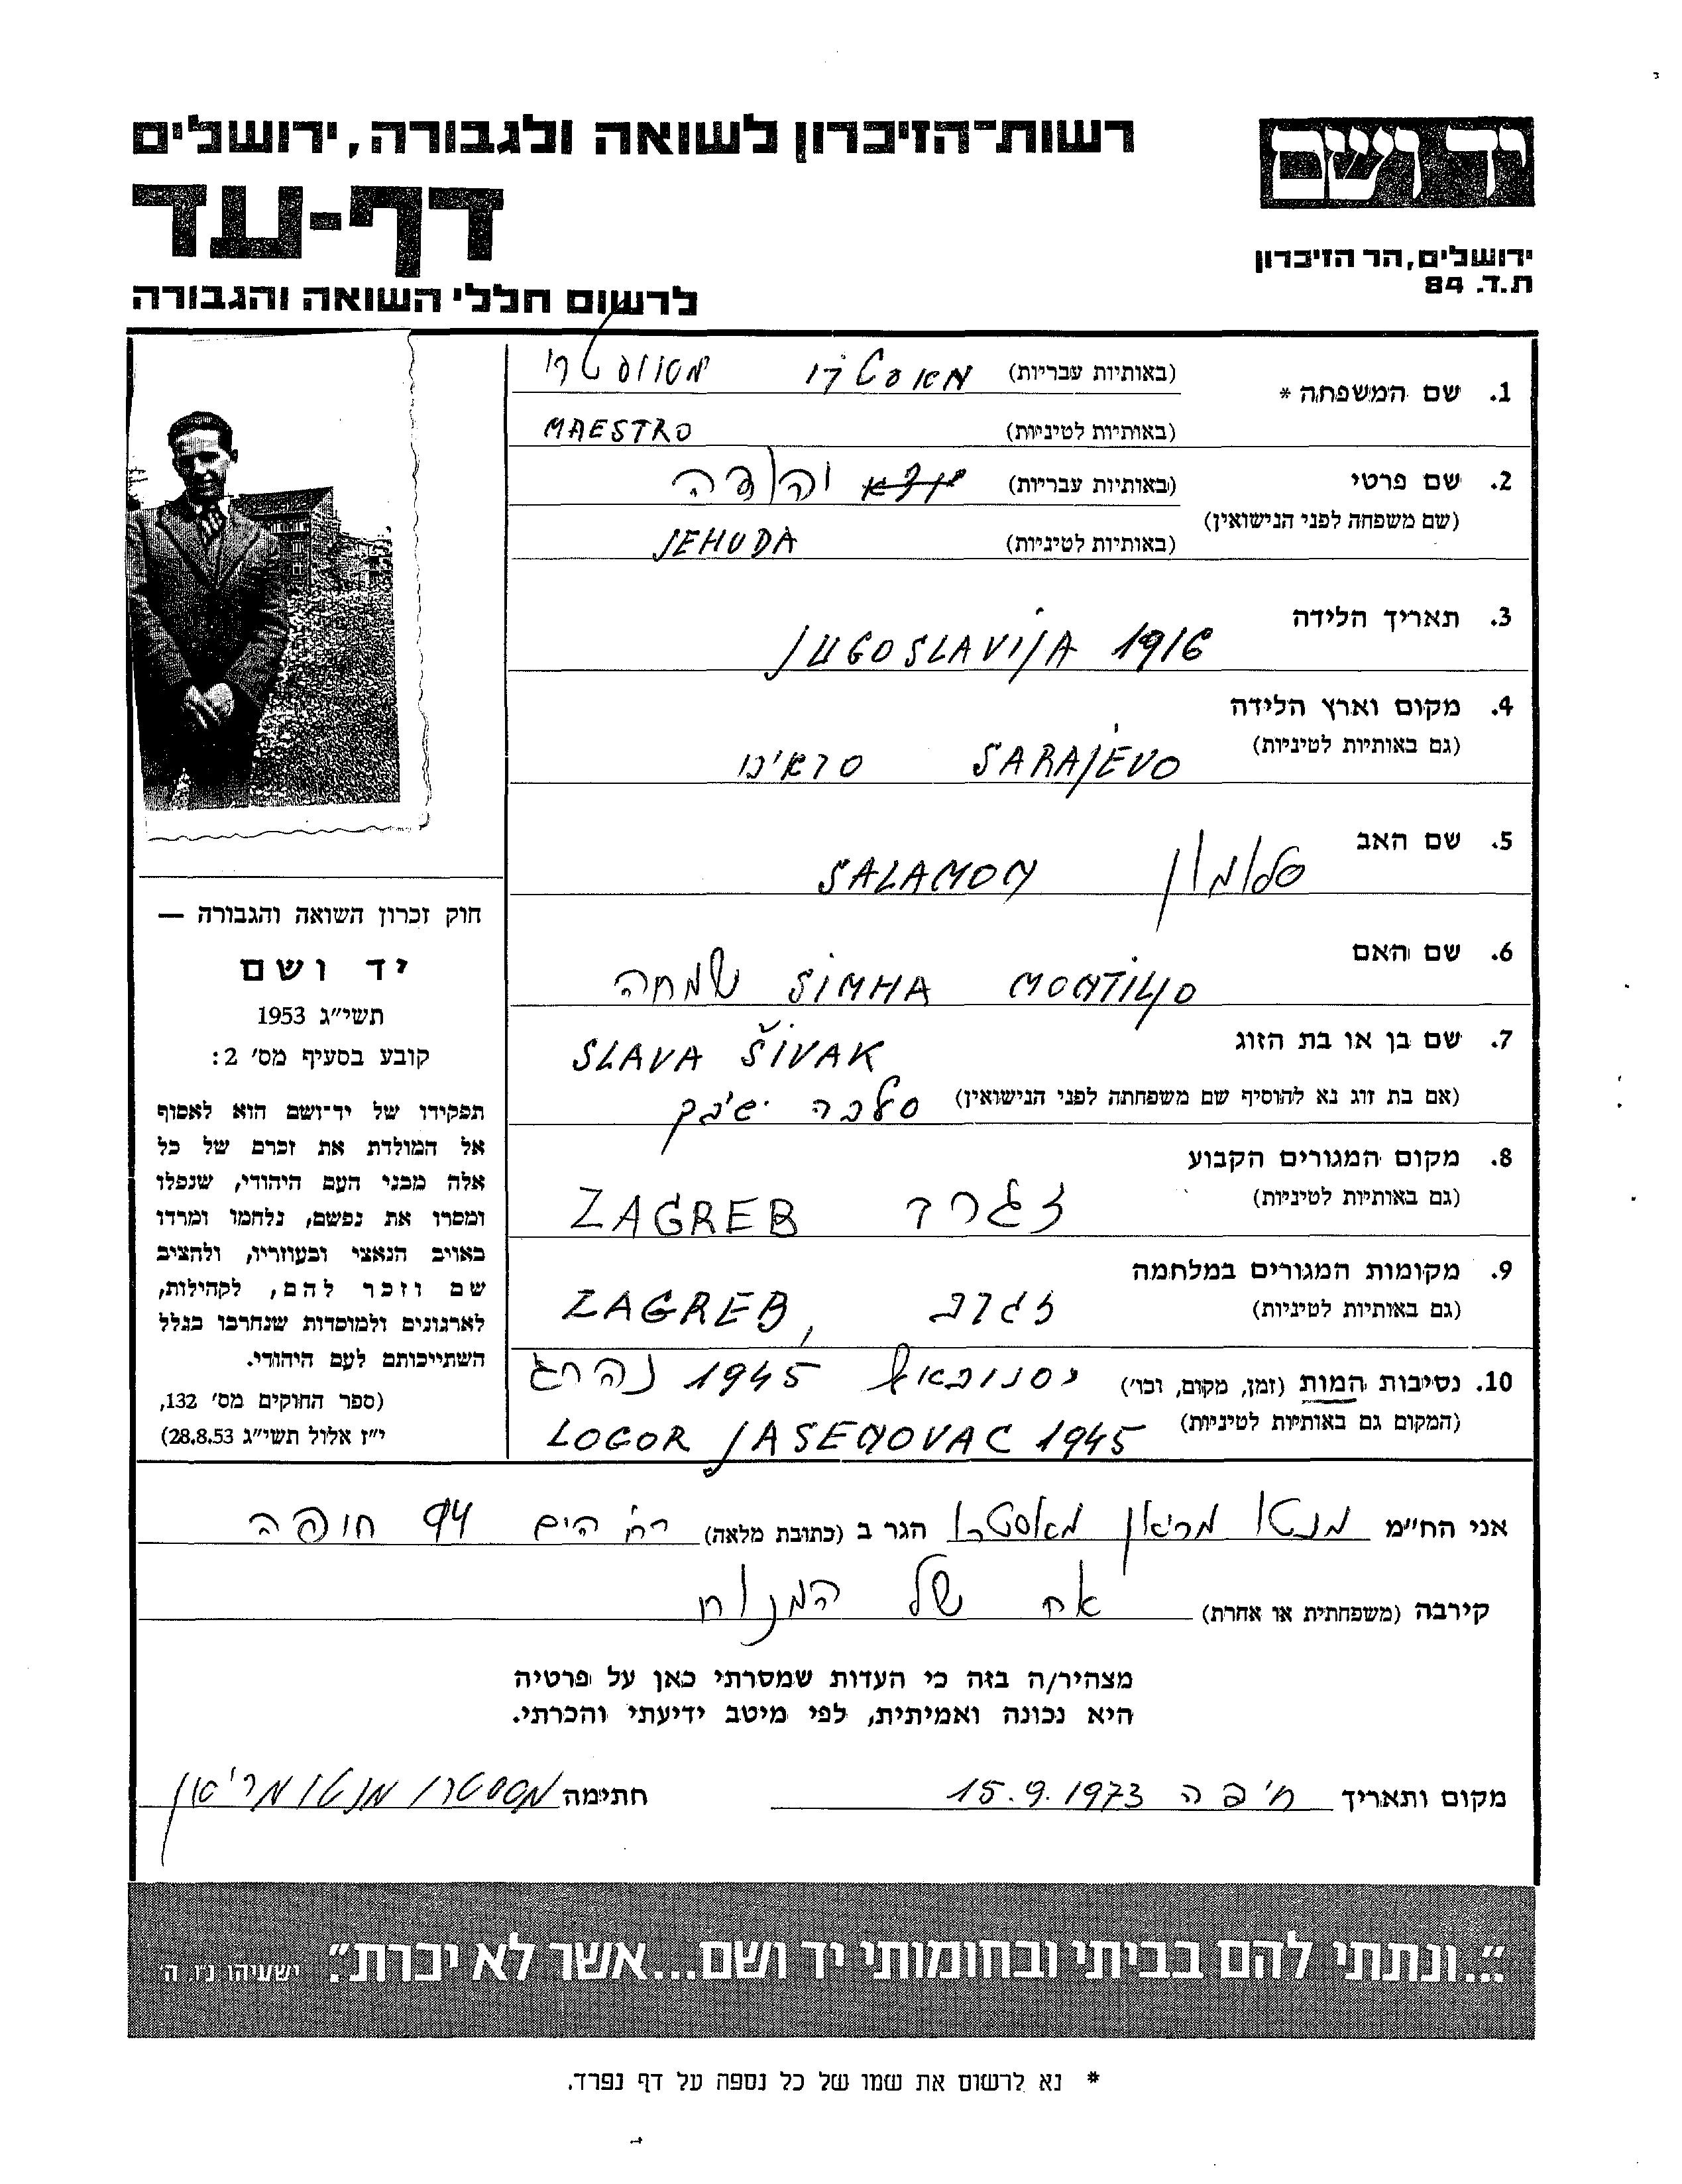 רשות־הזיכרון לשואה ולגבורה, ירושלים
יד ושם
דף-עד
ירושלים, הר הזיכרון
ת.ד. 84
לרשום חללי השואה והגבורה
1. שם המשפחה * (באותיות עבריות) מאסטרו
(באותיות לטיניות) MAESTRO
2. שם פרטי (באותיות עבריות) יהודה
(שם משפחה לפני הנישואין)
(באותיות לטיניות) JEHUDA
3. תאריך הלידה
JUGOSLAVIJA 1916
4. מקום וארץ הלידה
(גם באותיות לטיניות) SARAJEVO סראיבו
5. שם האב
סלומון SALAMON
6. שם האם
MONTILJO SIMHA שמחה
7. שם בן או בת הזוג SLAVA ŠIVAK
(אם בת זוג נא להוסיף שם משפחתה לפני הנישואין) סלבה שיבק
8. מקום המגורים הקבוע
(גם באותיות לטיניות) זגרב ZAGREB
9. מקומות המגורים במלחמה
(גם באותיות לטיניות) זגרב ZAGREB,
10. נסיבות המות (זמן, מקום, וכו') 1945 נהרג
(המקום גם באותיות לטיניות) LOGOR JASENOVAC 1945
חוק זכרון השואה והגבורה —
יד ושם
תשי"ג 1953
קובע בסעיף מס' 2:
תפקידו של יד־ושם הוא לאסוף
אל המולדת את זכרם של כל
אלה מבני העם היהודי, שנפלו
ומסרו את נפשם, נלחמו ומרדו
באויב הנאצי ובעוזריו, ולהציב
שם וזכר להם, לקהילות,
לארגונים ולמוסדות שנחרבו בגלל
השתייכותם לעם היהודי.
(ספר החוקים מס' 132,
י"ז אלול תשי"ג 28.8.53)
אני הח"מ מנטו מריאן מאסטרו הגר ב (כתובת מלאה) רח' הים 94 חיפה
קירבה (משפחתית או אחרת) אח של המנוח
מצהיר/ה בזה כי העדות שמסרתי כאן על פרטיה
היא נכונה ואמיתית, לפי מיטב ידיעתי והכרתי.
מקום ותאריך חיפה 15.9.1973 חתימה מסטרו מנטו מריאן
"...ונתתי להם בביתי ובחומותי יד ושם...אשר לא יכרת". ישעיהו נ"ו, ה'
* נא לרשום את שמו של כל נספה על דף נפרד.